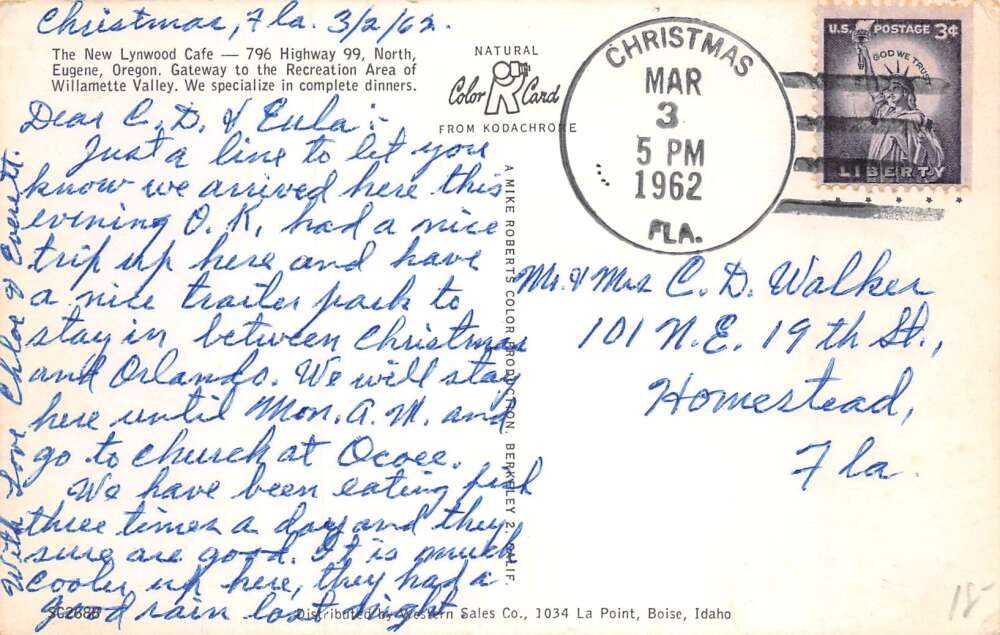 Christmas, Fla. 3/2/62.
The New Lynwood Cafe — 796 Highway 99, North,
Eugene, Oregon. Gateway to the Recreation Area of
Willamette Valley. We specialize in complete dinners.
NATURAL
Color Card
FROM KODACHROME
CHRISTMAS
MAR
3
5 PM
1962
FLA.
U.S. POSTAGE 3¢
IN GOD WE TRUST
LIBERTY
Dear C. D. & Eula:-
Just a line to let you
know we arrived here this
evening O.K, had a nice
trip up here and have
a nice trailer park to
stay in between Christmas
and Orlando. We will stay
here until Mon. A.M. and
go to church at Ocoee.
We have been eating fish
three times a day and they
sure are good. It is much
cooler up here, they had a
good rain last night
With Love Chloe & Everett.
A MIKE ROBERTS COLOR PRODUCTION, BERKELEY 2, CALIF.
Mr. & Mrs C. D. Walker
101 N.E. 19th St.,
Homestead,
Fla.
SC2686
Distributed by Western Sales Co., 1034 La Point, Boise, Idaho